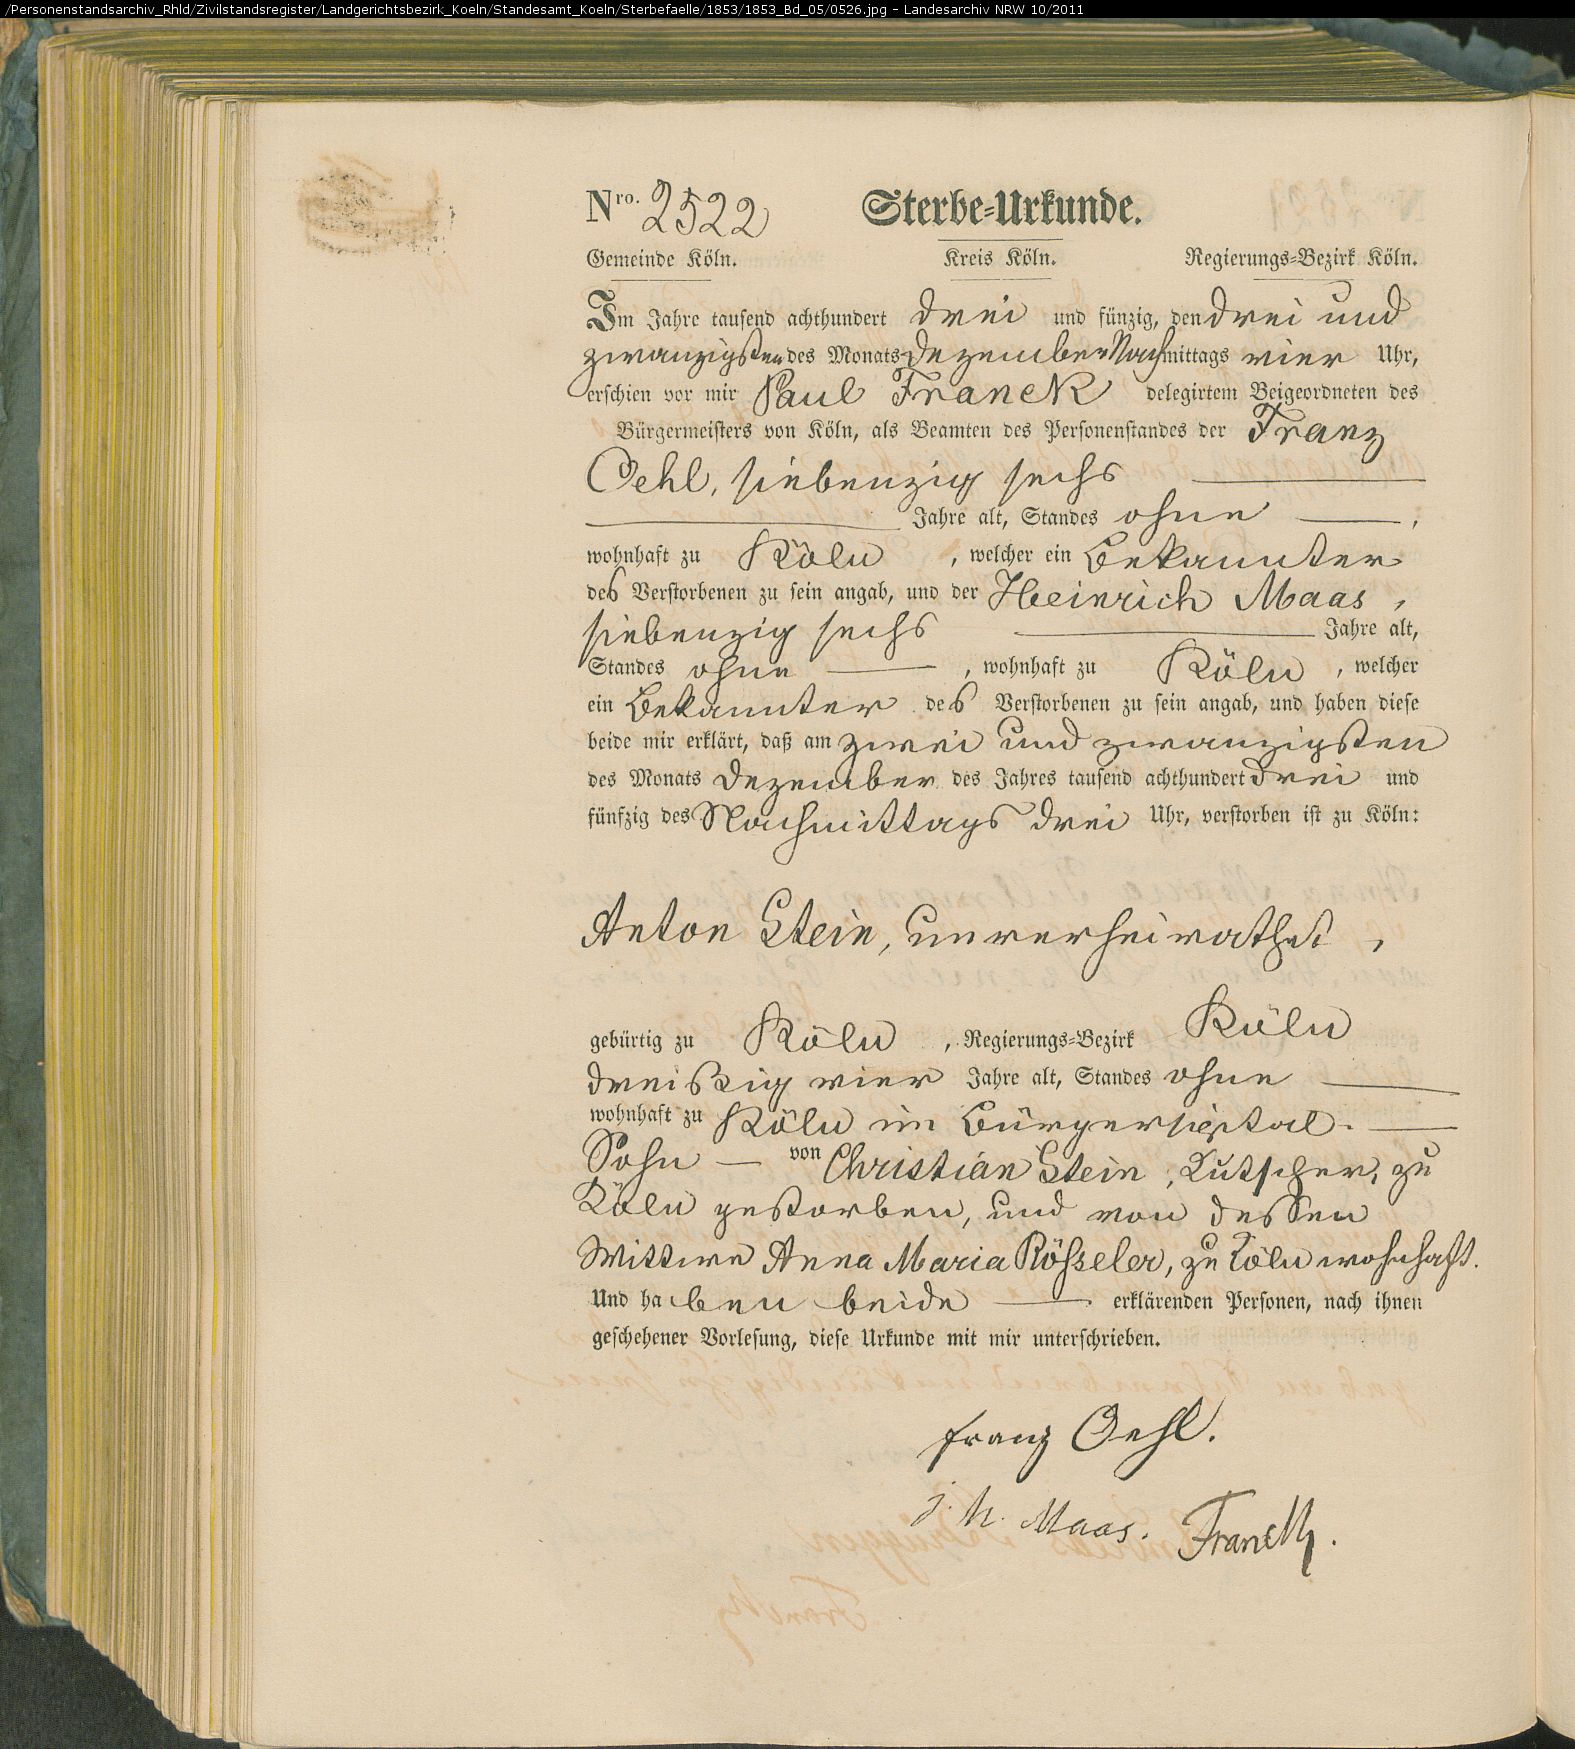 /Personenstandsarchiv_Rhld/Zivilstandsregister/Landgerichtsbezirk_Koeln/Standesamt_Koeln/Sterbefaelle/1853/1853_Bd_05/0526.jpg - Landesarchiv NRW 10/2011
Nro. 2522 Sterbe=Urkunde.
Gemeinde Köln. Kreis Köln. Regierungs=Bezirk Köln.
Im Jahre tausend achthundert drei und fünzig, den drei und
zwanzigsten des Monats Dezember Nachmittags vier Uhr,
erschien vor mir Paul Franck delegirtem Beigeordneten des
Bürgermeisters von Köln, als Beamten des Personenstandes der Franz
Oehl, siebenzig sechs
Jahre alt, Standes ohne ,
wohnhaft zu Köln , welcher ein Bekannter
des Verstorbenen zu sein angab, und der Heinrich Maas ,
siebenzig sechs Jahre alt,
Standes ohne , wohnhaft zu Köln , welcher
ein Bekannter des Verstorbenen zu sein angab, und haben diese
beide mir erklärt, daß am zwei und zwanzigsten
des Monats Dezember des Jahres tausend achthundert drei und
fünfzig des Nachmittags drei Uhr, verstorben ist zu Köln:
Anton Stein, unverheirathet ,
gebürtig zu Köln , Regierungs=Bezirk Köln
dreißig vier Jahre alt, Standes ohne
wohnhaft zu Köln im Bürgerspital.
Sohn — von Christian Stein, Kutscher, zu
Köln gestorben, und von dessen
Wittwe Anna Maria Rösseler, zu Köln wohnhaft.
Und haben beide erklärenden Personen, nach ihnen
geschehener Vorlesung, diese Urkunde mit mir unterschrieben.
Franz Oehl.
J. H. Maas. Franck.